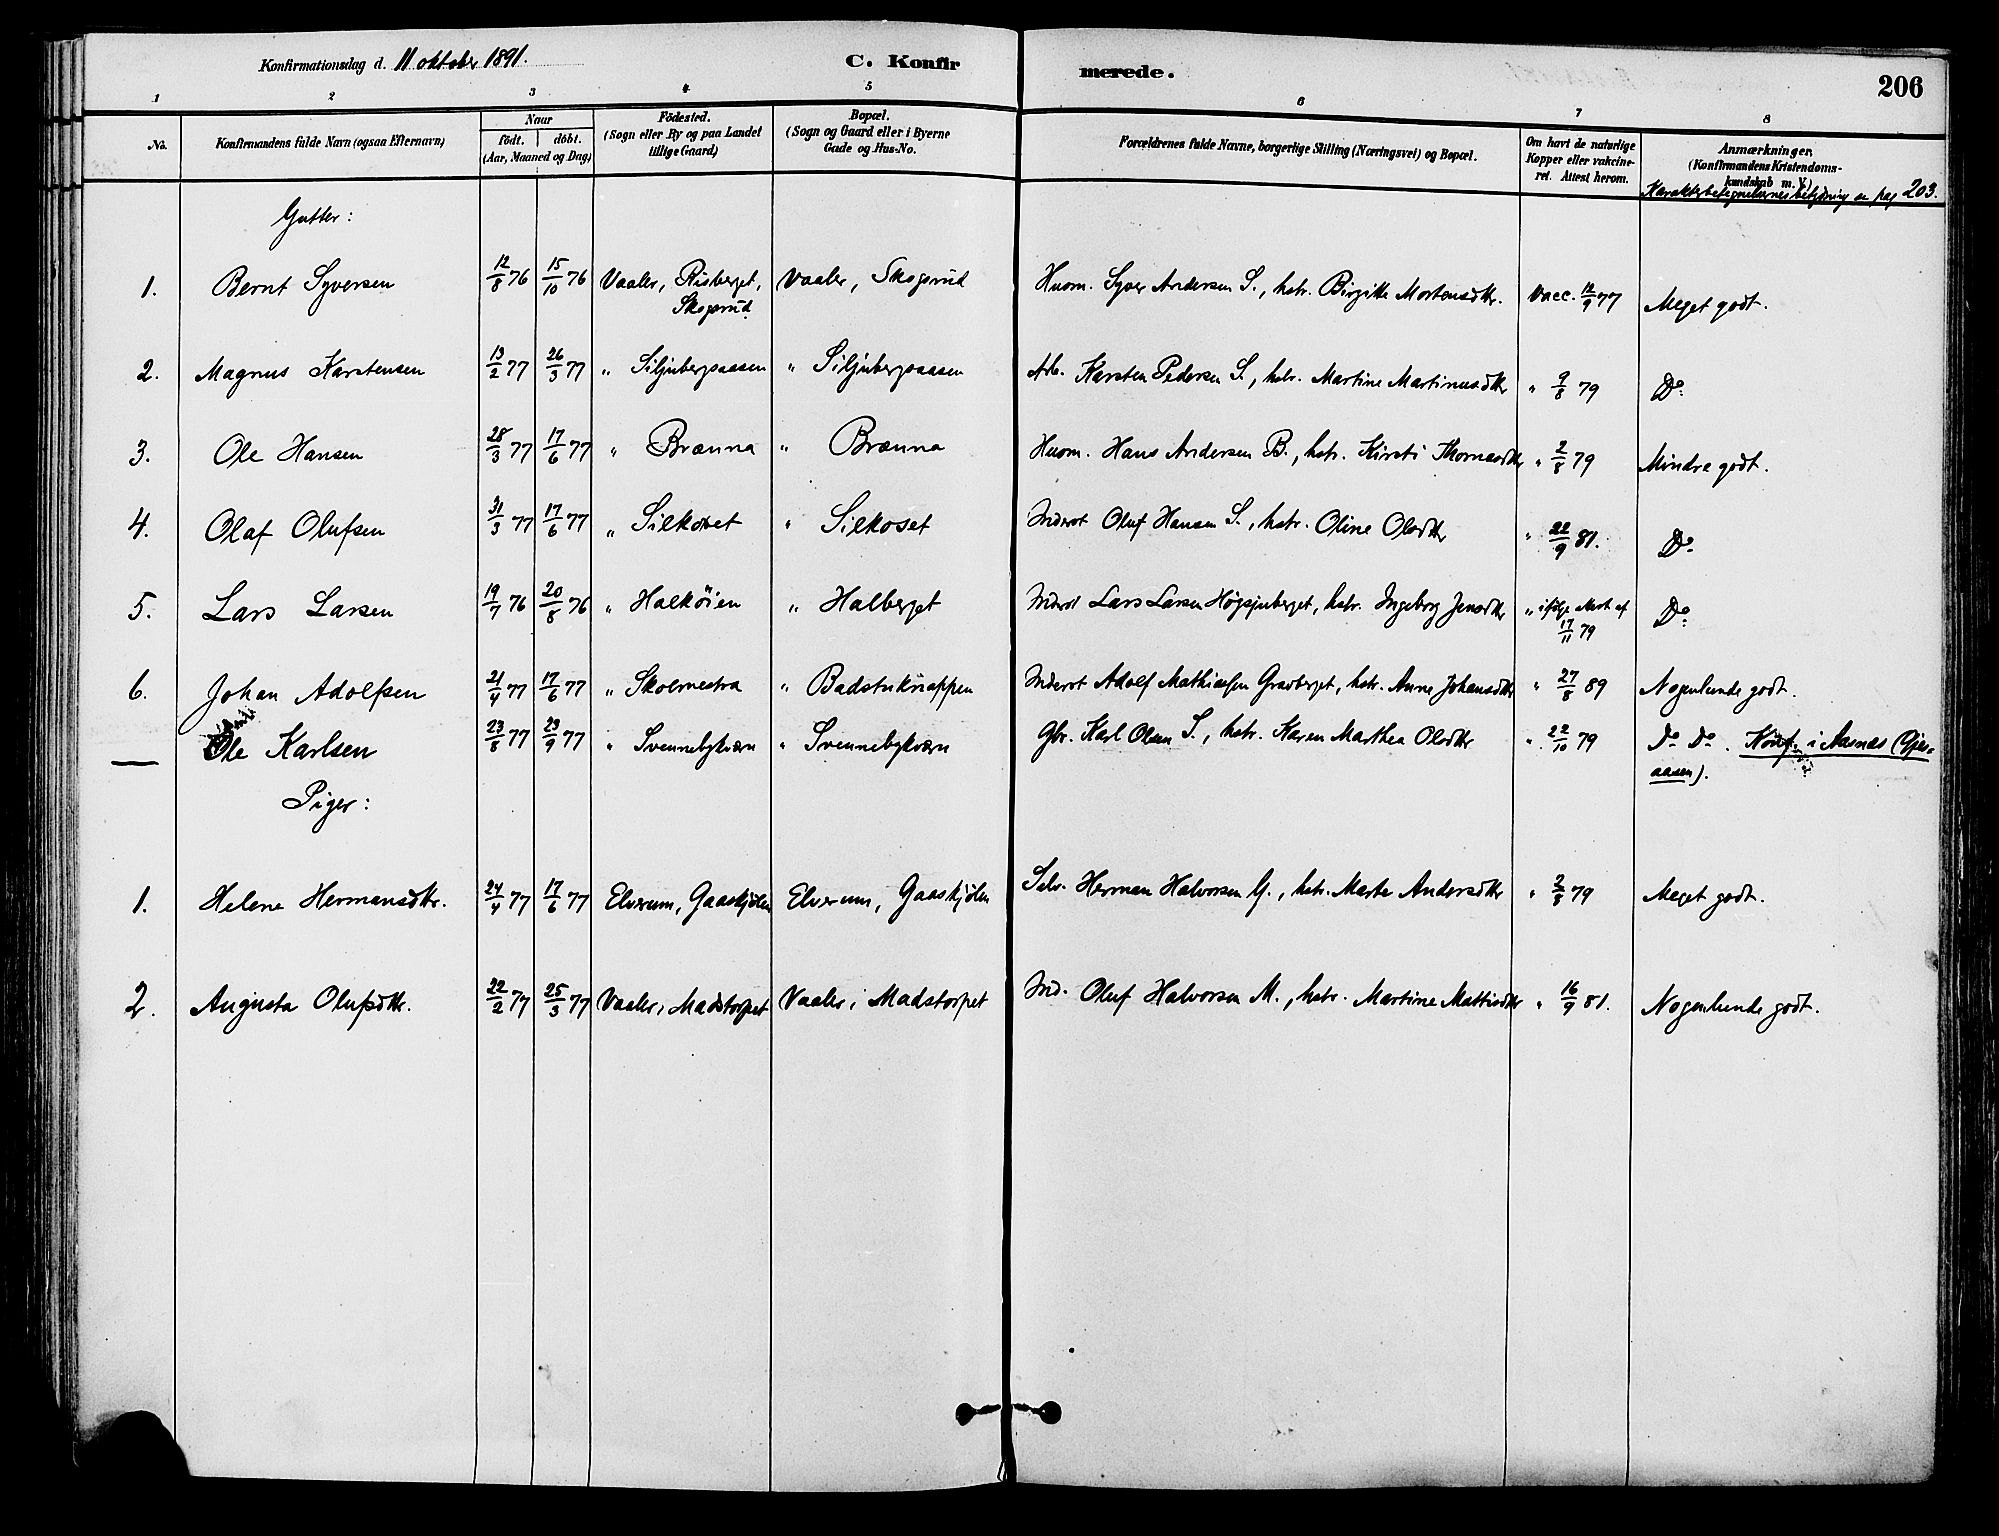 Konfirmationsdag d. 11 oktober 1891.
C. Konfir
merede.
206
1 2 3 4 5 6 7 8
No.
Konfirmandens fulde Navn (ogsaa Efternavn)
Naar
födt. döbt.
(Aar, Maaned og Dag)
Födested.
(Sogn eller By og paa Landet
tillige Gaard)
Bopæl.
(Sogn og Gaard eller i Byerne
Gade og Hus-No.
Forældrenes fulde Navne, borgerlige Stilling (Næringsvei) og Bopæl.
Om havt de naturlige
Kopper eller vakcine-
ret. Attest herom.
Anmærkninger.
(Konfirmandens Kristendoms-
kundskab m. V.)
Karakterbetegnelsernes betydning se pag 203.
Gutter:
1. Bernt Syversen 12/8 76 15/10 76 Vaaler, Risberget, Vaaler, Skogsrud Husm. Syver Andersen S., hstr. Birgitte Mortensdtr. Vacc. 12/9 77 Meget godt.
Skogsrud
2. Magnus Karstensen 13/2 77 26/3 77 " Siljubergsaasen " Siljubergsaasen Arb. Karsten Pedersen S., hstr. Martine Martinusdtr " 9/8 79 Do.
3. Ole Hansen 28/3 77 17/6 77 " Brænna " Brænna Husm. Hans Andersen B., hstr. Kirsti Thomasdtr " 2/8 79 Mindre godt.
4. Olaf Olufsen 31/3 77 17/6 77 " Silkoset " Silkoset Inderst Oluf Hansen S., hstr. Oline Olsdtr " 22/9 81. Do.
5. Lars Larsen 19/7 76 20/8 76 " Halköien " Halberget Inderst Lars Larsen Högsjuberget, hstr. Ingeborg Jensdtr " ifölge Attest af Do.
17/11 79
6. Johan Adolfsen 21/4 77 17/6 77 " Skolmestra " Badstuknappen Inderst Adolf Mathiesen Gravberget, hstr. Anne Johansdtr " 27/8 89 Nogenlunde godt.
— Ole Karlsen 23/8 77 23/9 77 " Svennebykværn " Svennebykværn Gbr. Karl Olsen S., hstr. Karen Marthea Olsdtr " 22/10 79 Do Do. Konf. i Aasnæs (Gjes-
aasen).
Piger:
1. Helene Hermansdtr. 24/4 77 17/6 77 Elverum, Gaaskjölen Elverum, Gaaskjölen Selv. Herman Halvorsen G., hstr. Marte Andersdtr " 2/8 79 Meget godt.
2. Augusta Olufsdtr. 22/2 77 25/3 77 Vaaler, Madstorpet Vaaler, Madstorpet Ind. Oluf Halvorsen M., hstr. Martine Mattisdtr " 16/9 81. Nogenlunde godt.